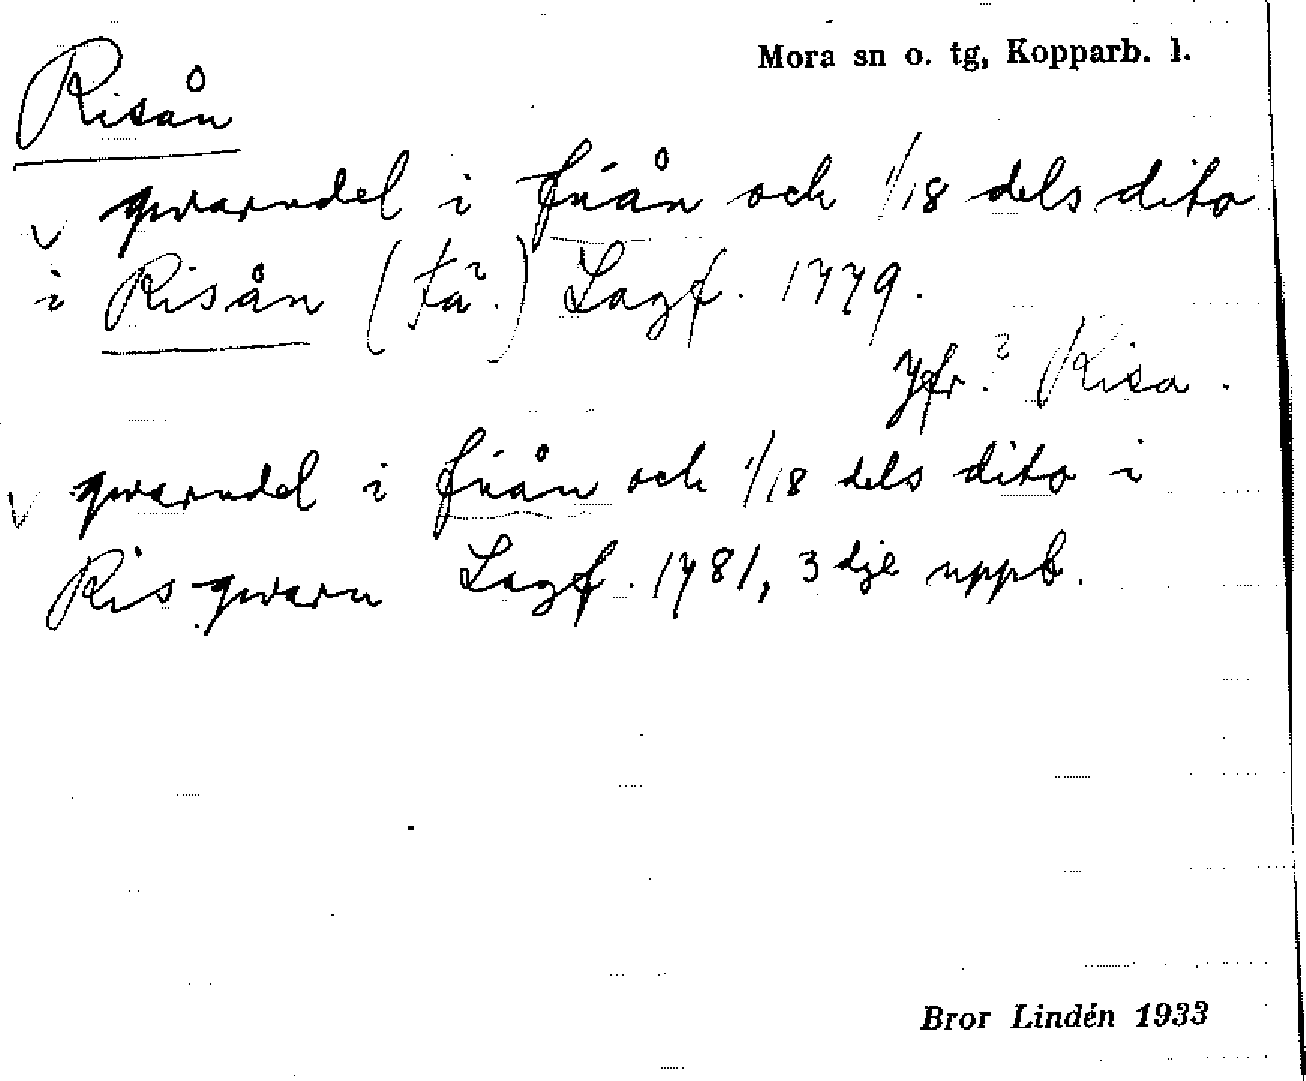 Mora sn o. tg, Kopparb. l.
Risån
v qvarndel i från och 1/18 dels dito
i Risån (tä?.) Lagf. 1779.
Jfr.? Risa.
v qvarndel i från och 1/18 dels dito i
Risqvarn Lagf. 1781, 3dje uppb.
Bror Lindén 1933